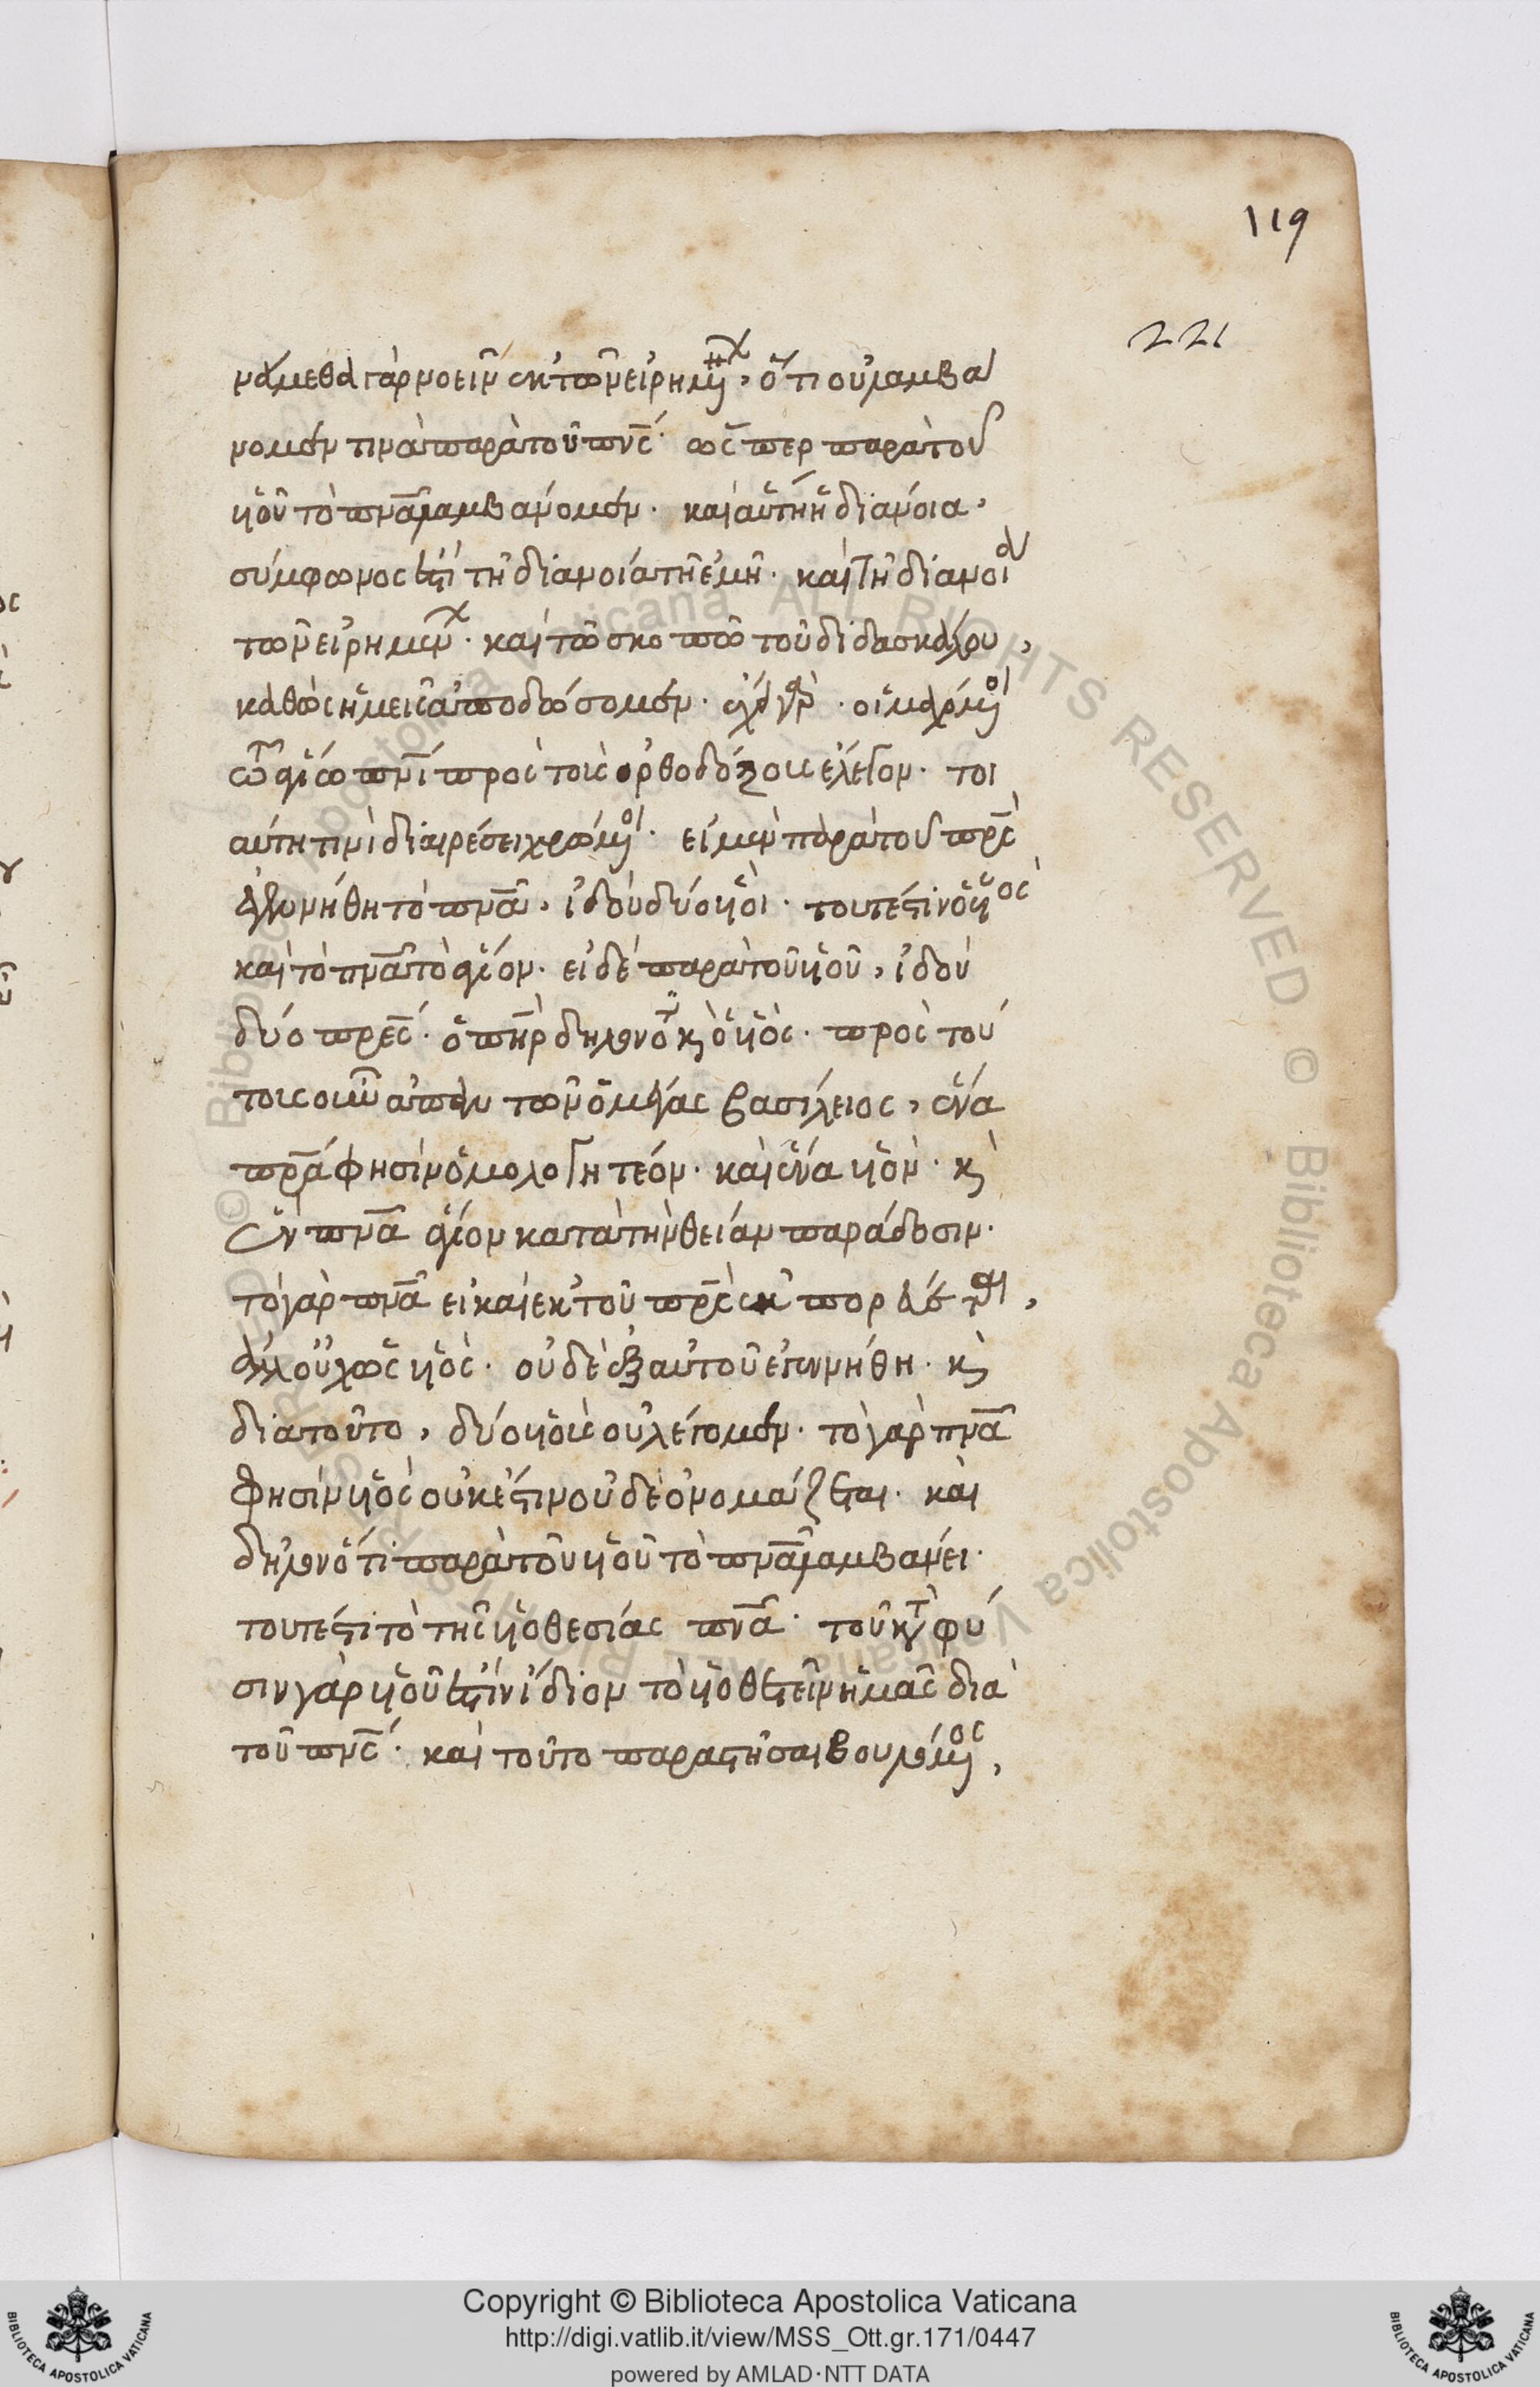 119
221
νάμεθα γὰρ νοεῖν ἐκ τῶν εἰρημ, ὅτι οὐ λαμβά
νομέν τινα παρὰ τοῦ πνς· ὥσπερ παρὰ τοῦ
υἱοῦ τὸ πνα λαμβάνομεν. καὶ αὕτη ἡ διάνοια,
σύμφωνός ἐστι τῇ διανοίᾳ τῇ ἐμῇ. καὶ τῇ διανοίᾳ
τῶν εἰρημέν. καὶ τῷ σκοπῷ τοῦ διδασκάλου,
καθὼς ἡμεῖς ἀποδώσομεν. οἱ μαχόμοι
τῷ ἁγίω πνι πρὸς τοὺς ὀρθοδόξους ἔλεγον. τοι
αύτη τινὶ διαιρέσει χρώμοι. εἰ μὲν παρὰ τοῦ πρς
ἐγεννήθη τὸ πνα, ἰδοὺ δύο υἱοὶ. τουτέστιν ὁ υἱὸς
καὶ τὸ πνα τὸ ἅγιον. εἰ δὲ παρὰ τοῦ υἱοῦ, ἰδοὺ
δύο πρες. ὁ πηρ δηλονότι κ ὁ υἱὸς. πρὸς τού
τοις οὖν ἀπαν τῶν ὁ μέγας βασίλειος, ἕνα
πρα φησὶν ὁμολογητέον. καὶ ἕνα υἱὸν. κ
ἓν πνα ἅγιον κατὰ τὴν θείαν παράδοσιν.
τὸ γὰρ πνα εἰ καὶ ἐκ τοῦ πρς ἐκπορεύεται,
ἀλλ' οὐχ ὡς υἱὸς. οὐδὲ ἐξ αὐτοῦ ἐγεννήθη. κ
διατοῦτο, δύο υἱοὺς οὐ λέγομεν. τὸ γὰρ πνα
φησὶν υἱὸς οὐκ ἔστιν οὐδὲ ὀνομάζεται. καὶ
δηλονότι παρὰ τοῦ υἱοῦ τὸ πνα λαμβάνει.
τουτέστι τὸ τῆς υἱοθεσίας πνα. τοῦ κατὰ φύ
σιν γὰρ υἱοῦ ἐστὶν ἴδιον τὸ υἱοθετεῖν ἡμᾶς διὰ
τοῦ πνς. καὶ τοῦτο παραστῆσαι βουλόμος,
Copyright © Biblioteca Apostolica Vaticana
http://digi.vatlib.it/view/MSS_Ott.gr.171/0447
powered by AMLAD·NTT DATA